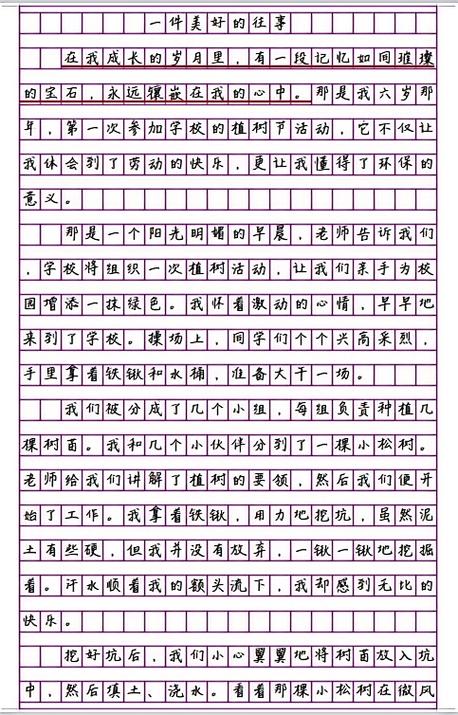 一件美好的往事
在我成长的岁月里，有一段记忆如同璀璨
的宝石，永远镶嵌在我的心中。那是我六岁那
年，第一次参加学校的植树节活动，它不仅让
我体会到了劳动的快乐，更让我懂得了环保的
意义。
那是一个阳光明媚的早晨，老师告诉我们
，学校将组织一次植树活动，让我们亲手为校
园增添一抹绿色。我怀着激动的心情，早早地
来到了学校。操场上，同学们个个兴高采烈，
手里拿着铁锹和水桶，准备大干一场。
我们被分成了几个小组，每组负责种植几
棵树苗。我和几个小伙伴分到了一棵小松树。
老师给我们讲解了植树的要领，然后我们便开
始了工作。我拿着铁锹，用力地挖坑，虽然泥
土有些硬，但我并没有放弃，一锹一锹地挖掘
着。汗水顺着我的额头流下，我却感到无比的
快乐。
挖好坑后，我们小心翼翼地将树苗放入坑
中，然后填土、浇水。看着那棵小松树在微风